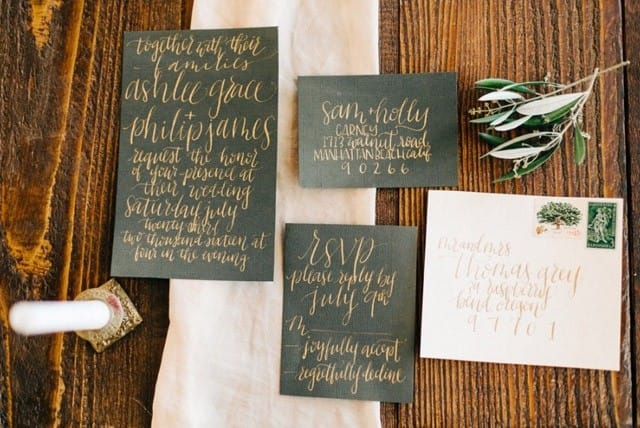 together with their
families
ashlee grace
+
philip james
request the honor
of your presence at
their wedding
saturday july
twenty third
two thousand sixteen at
four in the evening
sam + holly
CARNEY
1713 walnut road
MANHATTAN BEACH calif
90266
rsvp
please reply by
july 9th
M
joyfully accept
regretfully decline
mr and mrs
thomas grey
raspberry
bend, oregon
97701